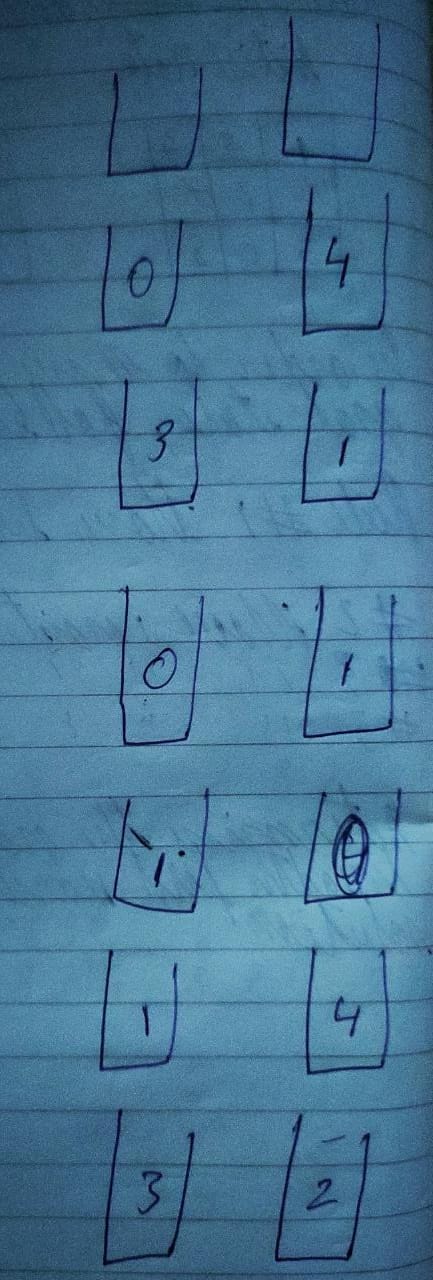 0 4
3 1
0 1
1
1 4
3 2